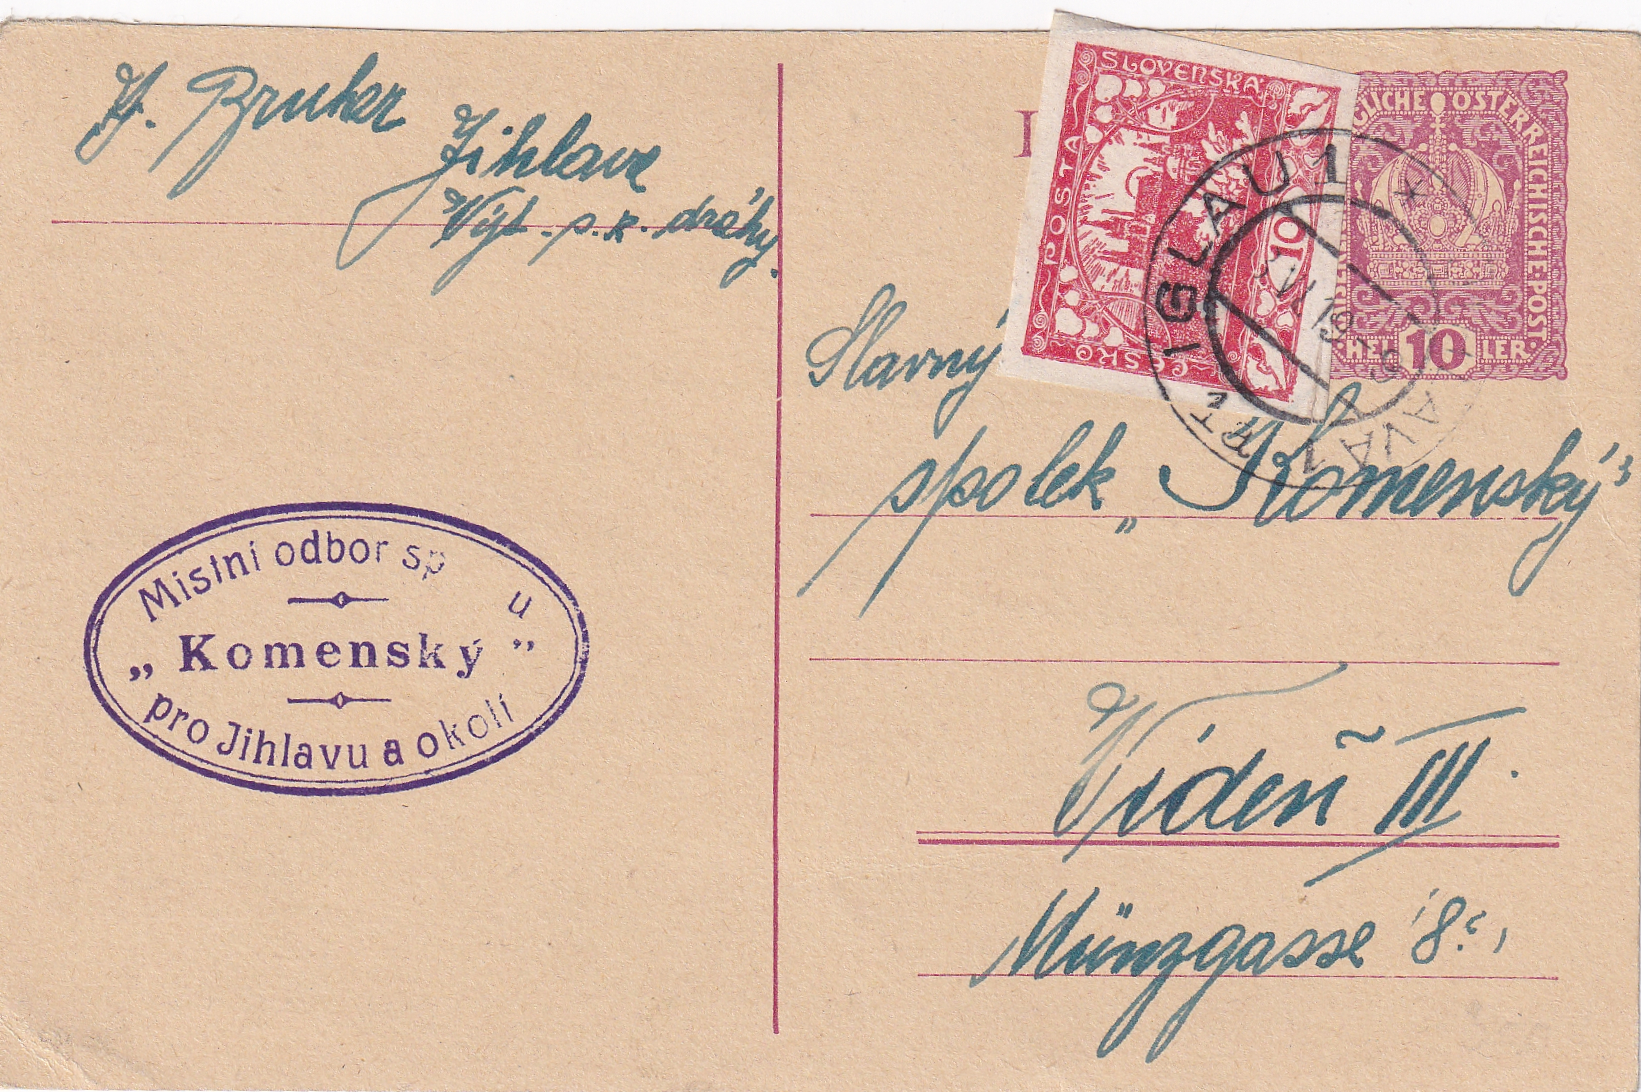 Bruker
Jihlava
Výt. s. k. dráhy.
POŠTA
ČESKO
SLOVENSKÁ
10
IGLAU 1
19
AVA 1
LICHE ÖSTERREICHISCHE POST
10
HELLER
Slavný
spolek „Komenský“
Vídeň III.
Münzgasse 8
Místní odbor sp u
„Komenský”
pro Jihlavu a okolí